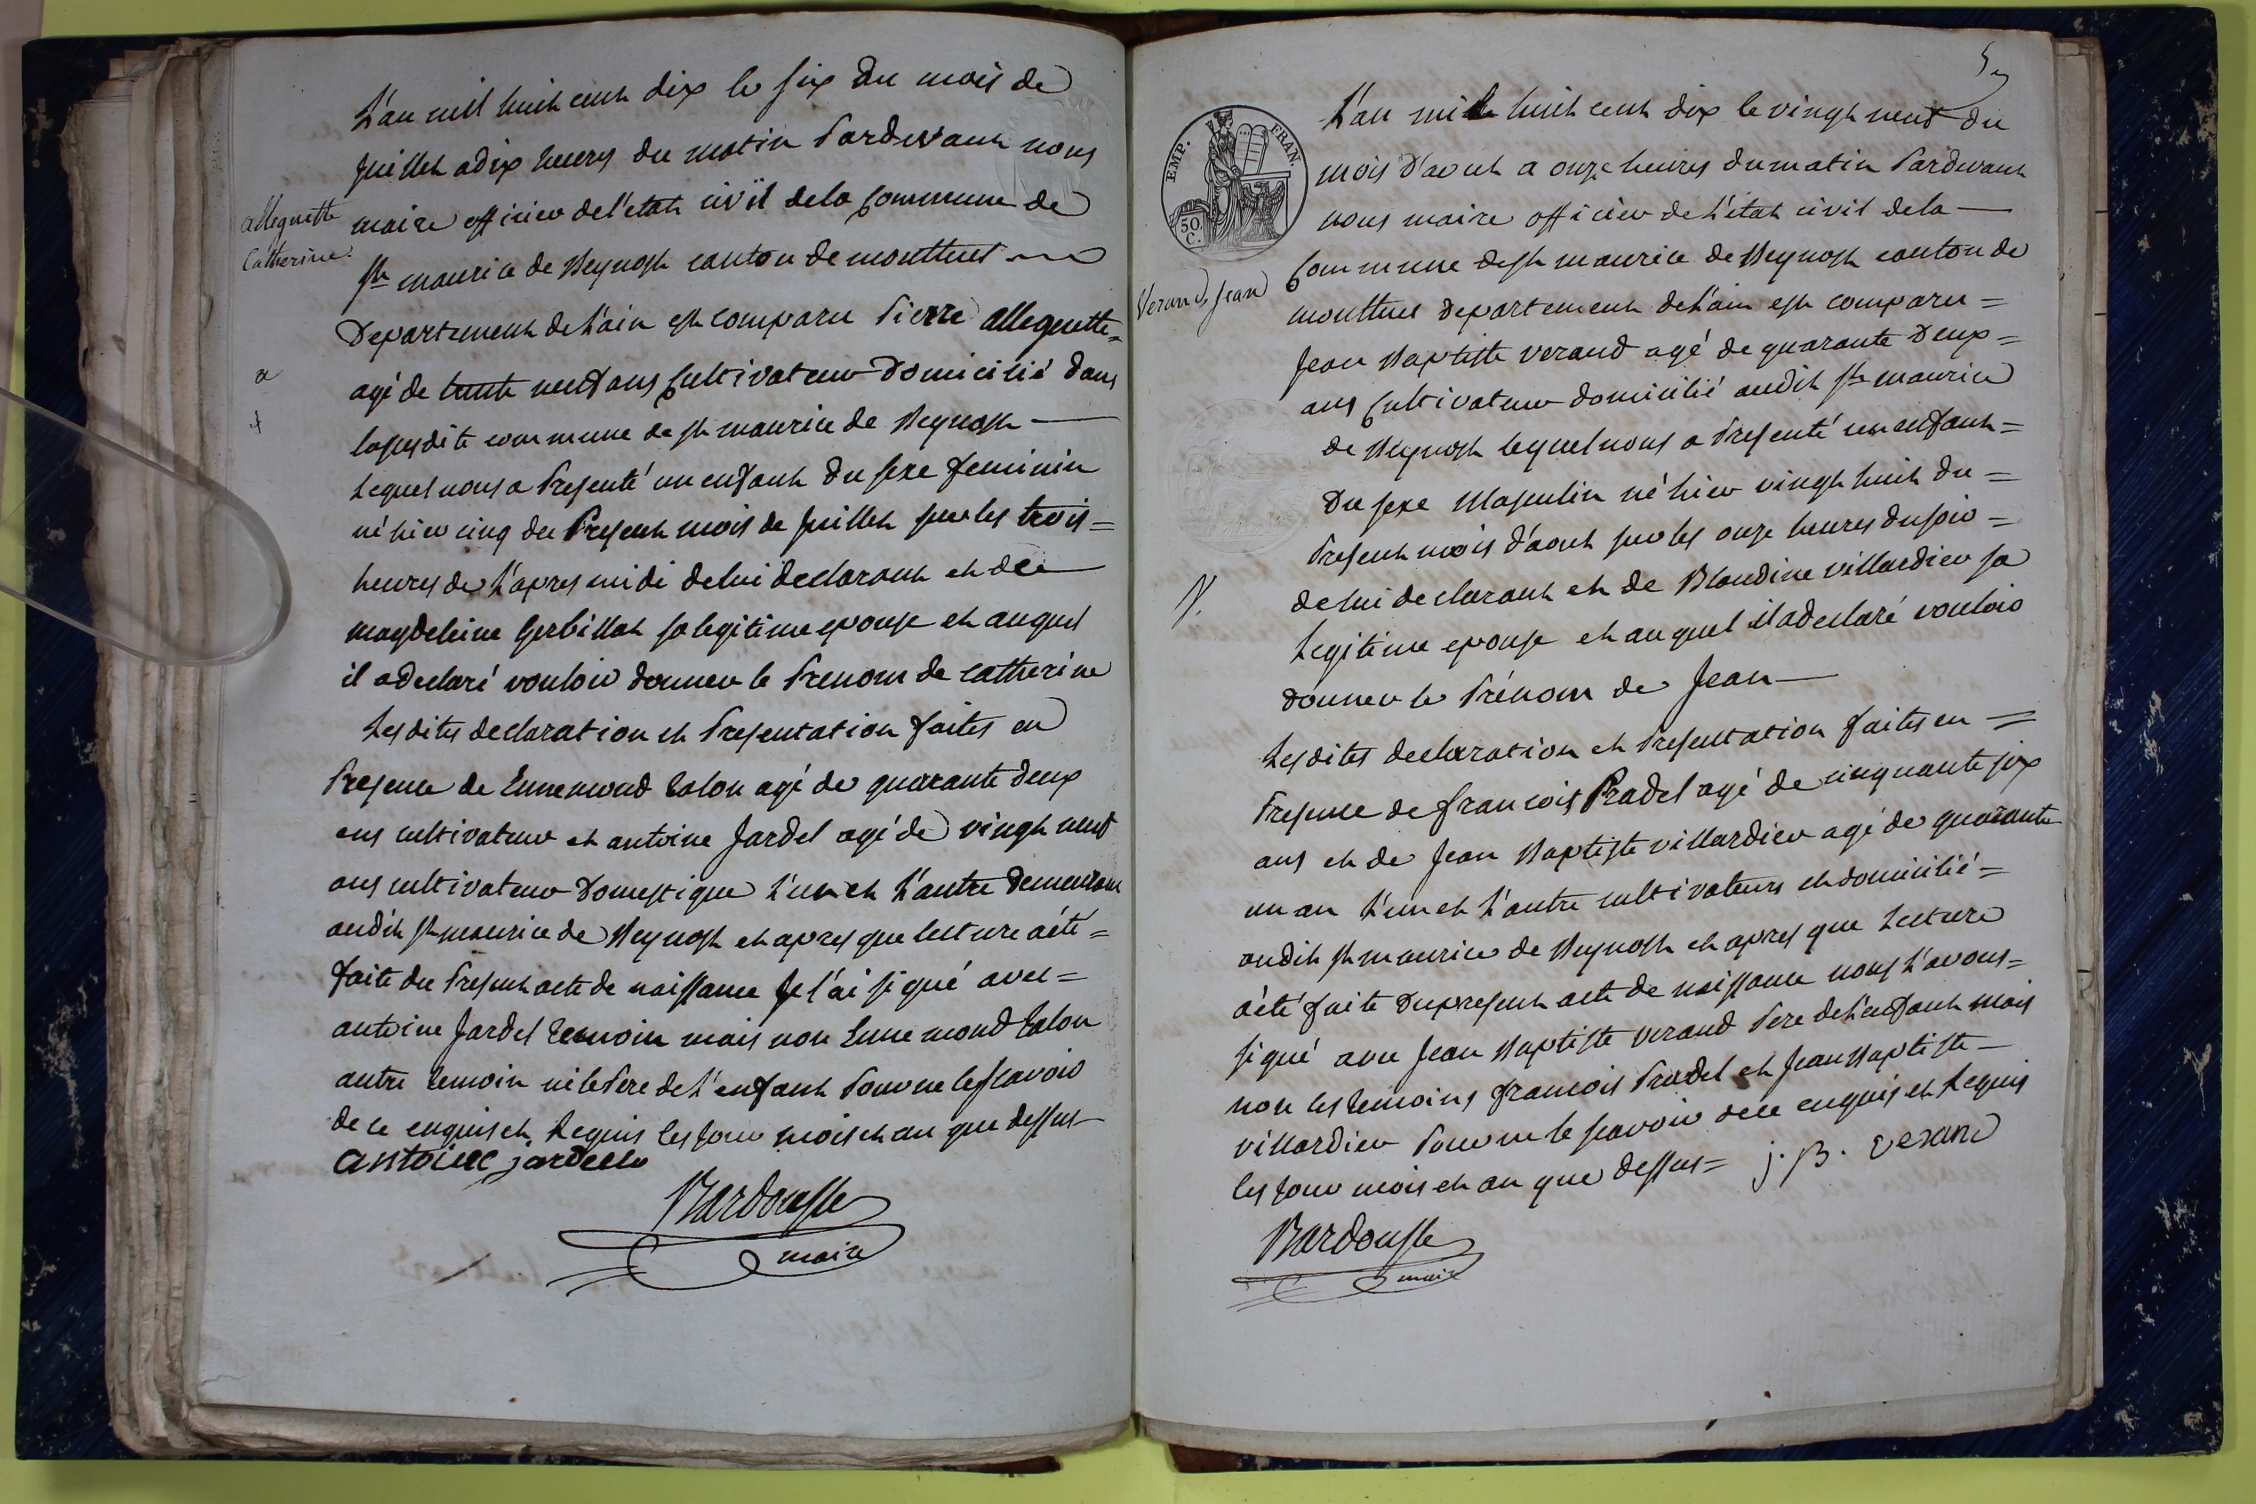 L'an mil huit cent dix le six du mois de
Juillet a dix heures du matin Pardevant nous
maire officier de l'etat civil de la Commune de
St maurice de Beynost canton de montluel
Departement de l'ain est comparu Pierre alleguette =
agé de trente neuf ans Cultivateur Domicilié dans
la susdite commune de st maurice de Beynost
Lequel nous a Presenté un enfant du sexe feminin
né hier cinq du Present mois de Juillet sur les trois =
heures de l'apres midi de lui declarant et de
magdeleine Gerbillat sa legitime epouse et auquel
il a declaré vouloir donner le Prenom de catherine
Les dites declaration et Presentation faites en
Presence de Ennemond Talon agé de quarante deux
ans cultivateur et antoine Jardel agé de vingt neuf
ans cultivateur Domestique l'un et l'autre demeurant
audit st maurice de Beynost et apres que lecture a été =
faite du Present acte de naissance Je l'ai signé avec =
antoine Jardel temoin mais non Ennemond Talon
autre temoin ni le Pere de l'enfant Pour ne le scavoir
de ce enquis et Requis les Jour mois et an que dessus
antoine jardelle
Bardousse
maire
alleguette
Catherine
a
5
L'an mil huit cent dix le vingt neuf du
mois d'aout a onze heures du matin Pardevant
nous maire officier de l'état civil de la
Commune de st maurice de Beynost canton de
montluel departement de l'ain est comparu =
Jean Baptiste verand agé de quarante Deux =
ans Cultivateur domicilié audit st maurice
de Beynost lequel nous a Presenté un enfant =
Du sexe Masculin né hier vingt huit du =
Present mois d'aout sur les onze heures du soir =
de lui declarant et de Blandine villardier sa
Legitime epouse et auquel il a declaré vouloir
donner le Prénom de Jean
Les dites declaration et Presentation faites en =
Presence de francois Pradel agé de cinquante six
ans et de Jean Baptiste villardier agé de quarante
un an l'un et l'autre cultivateurs et domicilié =
audit st maurice de Beynost et apres que Lecture
a été faite du present acte de naissance nous l'avons =
signé avec Jean Baptiste verand Pere de l'enfant mais
non les temoins francois Pradel et Jean Baptiste
villardier Pour ne le scavoir de ce enquis et Requis
les Jour mois et an que dessus = j. B. verand
Bardousse
maire
EMP. FRAN.
50 C.
Verand Jean
V.